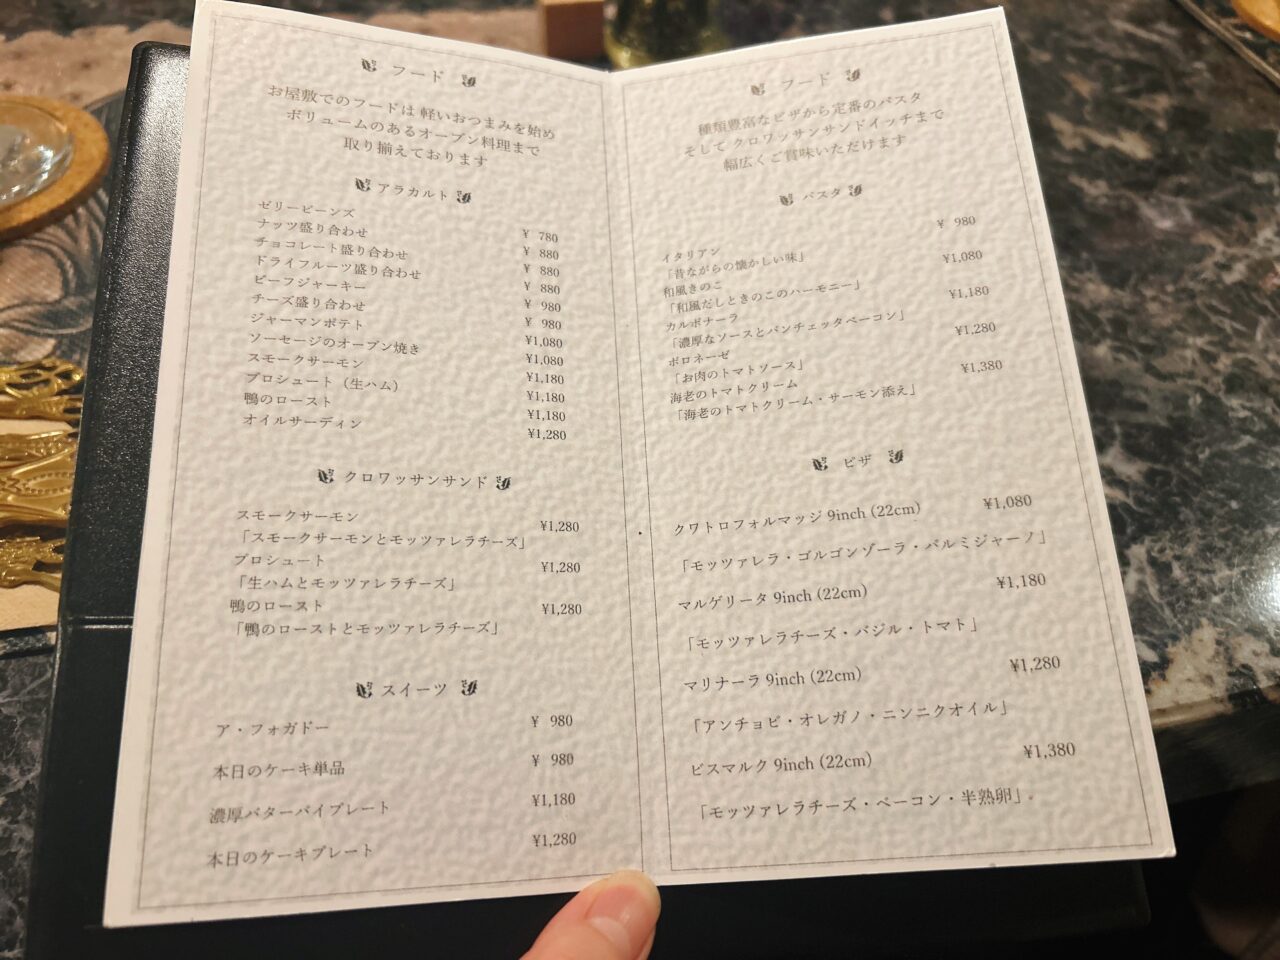 フード
お屋敷でのフードは 軽いおつまみを始め
ボリュームのあるオーブン料理まで
取り揃えております
アラカルト
ゼリービーンズ ¥ 780
ナッツ盛り合わせ ¥ 880
チョコレート盛り合わせ ¥ 880
ドライフルーツ盛り合わせ ¥ 880
ビーフジャーキー ¥ 980
チーズ盛り合わせ ¥ 980
ジャーマンポテト ¥1,080
ソーセージのオーブン焼き ¥1,080
スモークサーモン ¥1,180
プロシュート（生ハム） ¥1,180
鴨のロースト ¥1,180
オイルサーディン ¥1,280
クロワッサンサンド
スモークサーモン ¥1,280
「スモークサーモンとモッツァレラチーズ」
プロシュート ¥1,280
「生ハムとモッツァレラチーズ」
鴨のロースト ¥1,280
「鴨のローストとモッツァレラチーズ」
スイーツ
ア・フォガドー ¥ 980
本日のケーキ単品 ¥ 980
濃厚バターパイプレート ¥1,180
本日のケーキプレート ¥1,280
フード
種類豊富なピザから定番のパスタ
そして クロワッサンサンドイッチまで
幅広くご賞味いただけます
パスタ
イタリアン ¥ 980
「昔ながらの懐かしい味」
和風きのこ ¥1,080
「和風だしときのこのハーモニー」
カルボナーラ ¥1,180
「濃厚なソースとパンチェッタベーコン」
ボロネーゼ ¥1,280
「お肉のトマトソース」
海老のトマトクリーム ¥1,380
「海老のトマトクリーム・サーモン添え」
ピザ
クワトロフォルマッジ 9inch (22cm) ¥1,080
「モッツァレラ・ゴルゴンゾーラ・パルミジャーノ」
マルゲリータ 9inch (22cm) ¥1,180
「モッツァレラチーズ・バジル・トマト」
マリナーラ 9inch (22cm) ¥1,280
「アンチョビ・オレガノ・ニンニクオイル」
ビスマルク 9inch (22cm) ¥1,380
「モッツァレラチーズ・ベーコン・半熟卵」